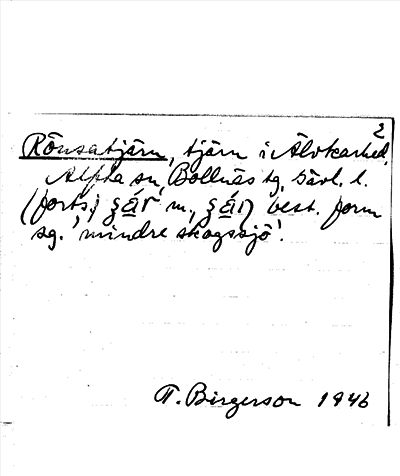 2
Rönsatjärn, tjärn i Älvkarhed,
Alfta sn, Bollnäs tg, Gävl. l.
(forts.) m., best. form
sg. 'mindre skogssjö'.
T. Birgerson 1946